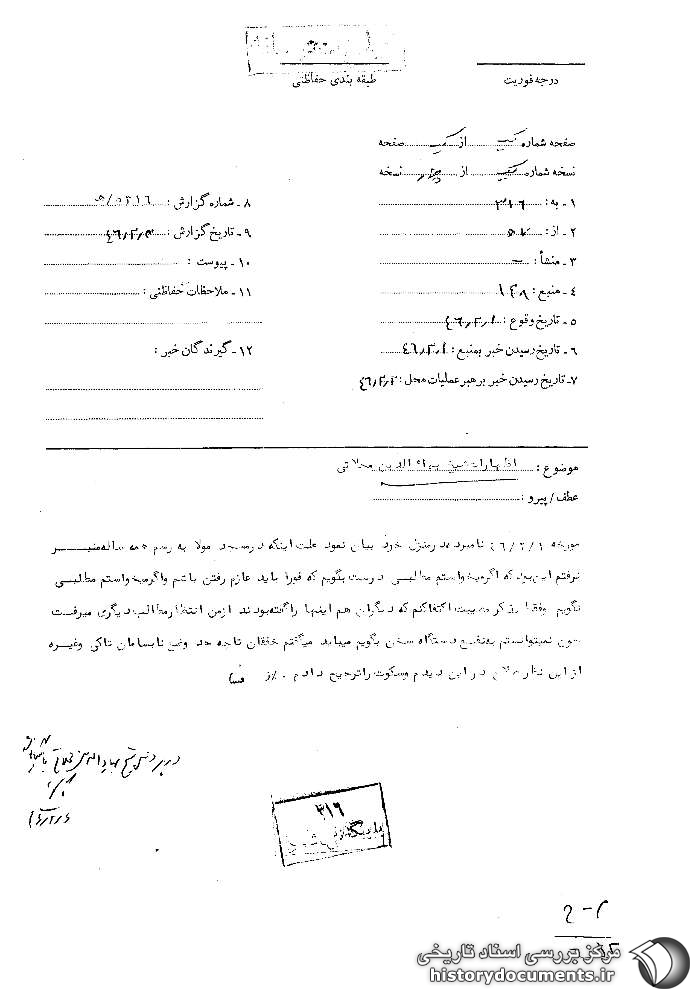 درجه فوریت
طبقه بندی حفاظتی
صفحه شماره یک از یک صفحه
نسخه شماره یک از نسخه
۱ـ به: ۳۱۶
۲ـ از:
۳ـ منشأ: ـ
۴ـ منبع:
۵ـ تاریخ وقوع: ۴۶/۲/۱
۶ـ تاریخ رسیدن خبر بمنبع: ۴۶/۲/۱
۷ـ تاریخ رسیدن خبر برهبر عملیات محل: ۴۶/۲/۲
۸ـ شماره گزارش:
۹ـ تاریخ گزارش:
۱۰ـ پیوست:
۱۱ـ ملاحظات حفاظتی:
۱۲ـ گیرندگان خبر:
موضوع: اظهارات شیخ بهاء الدین محلاتی
عطف/پیرو:
مورخه ۴۶/۲/۱ نامبرده در منزل خود بیان نمود علت اینکه در مسجد مولا به رسم همه ساله منبر
نرفتم این بود که اگر میخواستم مطالبی درست بگویم که فورا باید عازم رفتن باشم و اگر میخواستم مطلبی
نگویم و فقط بذکر مصیبت اکتفا کنم که دیگران هم اینها را گفته بودند از من انتظار مطالب دیگری میرفت
چون نمیتوانستم به نفع دستگاه سخن بگویم میباید میگفتم خفقان تا چه حد وضع نابسامان تاکی و غیره
از این نظر صلاح در این دیدم و سکوت را ترجیح دادم.
۳۱۶
بایگانی شد
مرکز بررسی اسناد تاریخی
historydocuments.ir